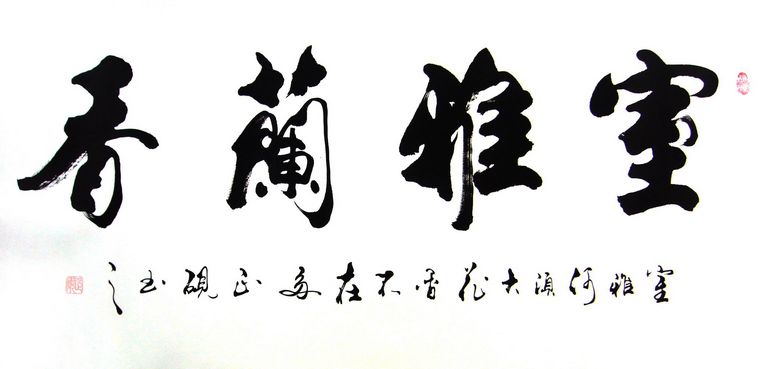 室雅蘭香
室雅何須大花香不在多正硯书之